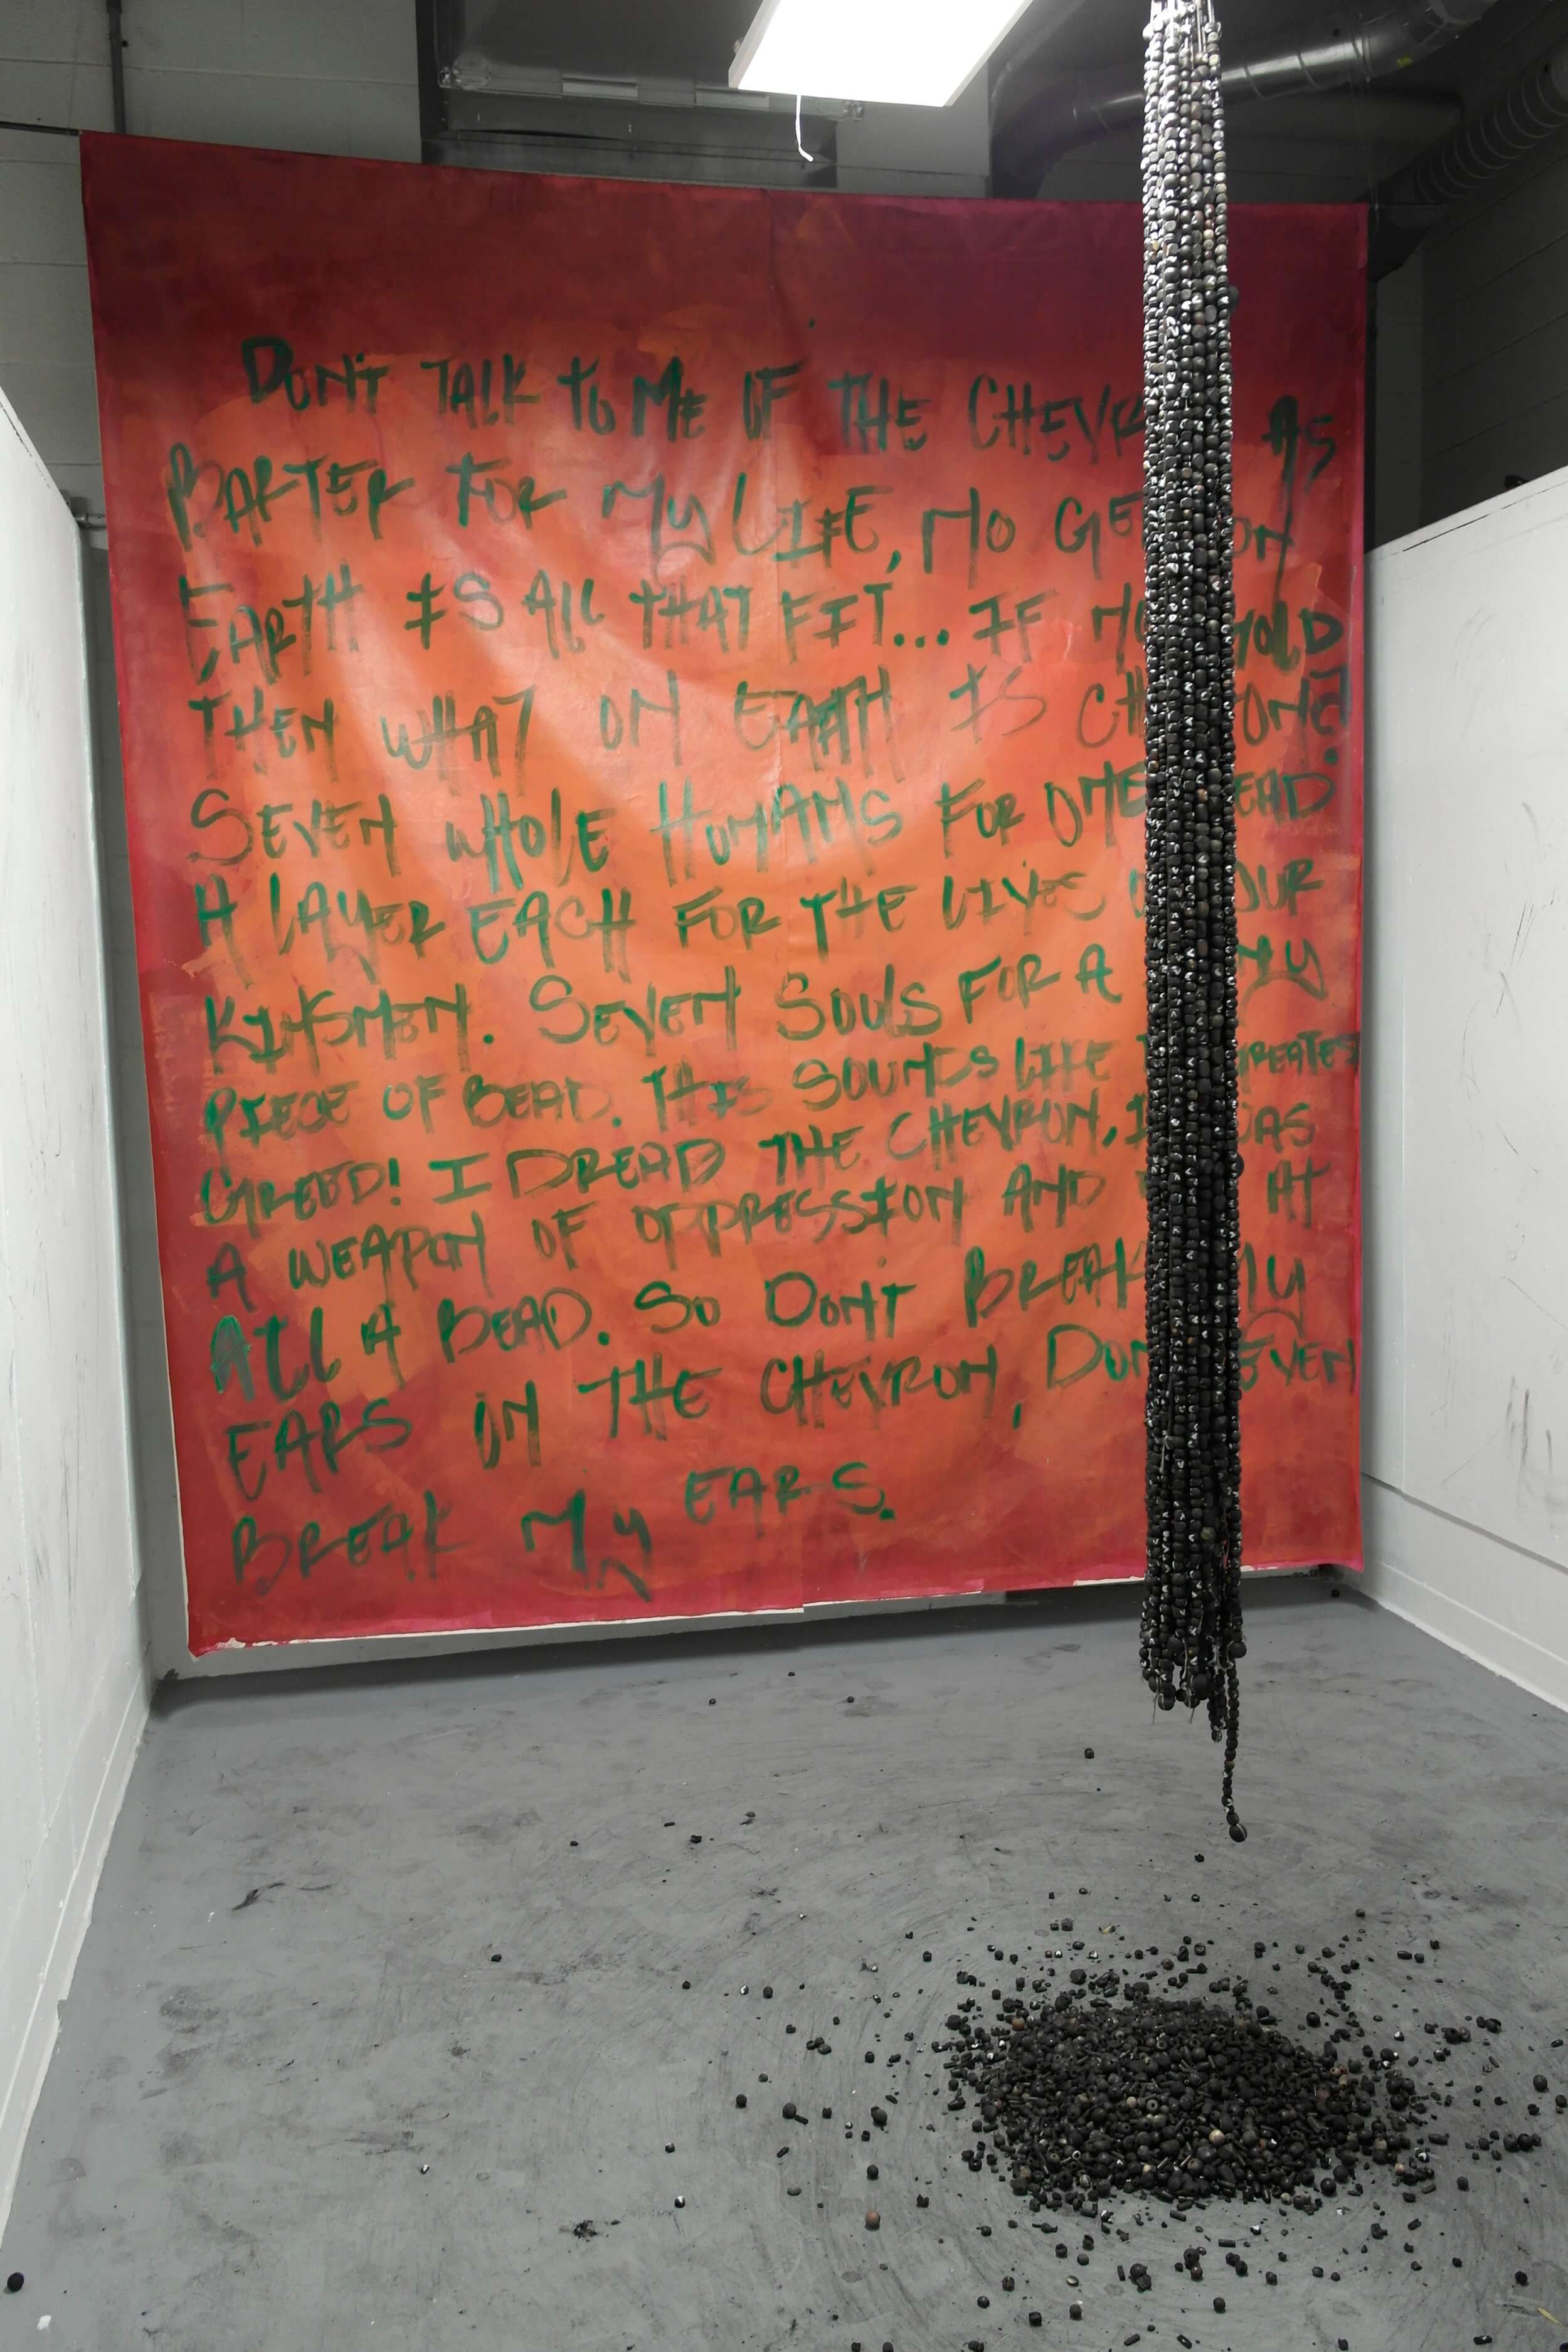 DON'T TALK TO ME OF THE CHEVR AS
BARTER FOR MY LIFE, NO GE ON
EARTH IS ALL THAT FIT... IF NO GOLD
THEN WHAT ON EARTH IS CH ONE?
SEVEN WHOLE HUMANS FOR ONE EAD
A LAYER EACH FOR THE LIVES O OUR
KINSMEN. SEVEN SOULS FOR A NY
PIECE OF BEAD. THIS SOUNDS LIKE REATEST
GREED! I DREAD THE CHEVRON, I WAS
A WEAPON OF OPPRESSION AND AT
ALL A BEAD. SO DONT BREAK MY
EARS ON THE CHEVRON, DON EVEN
BREAK MY EARS.